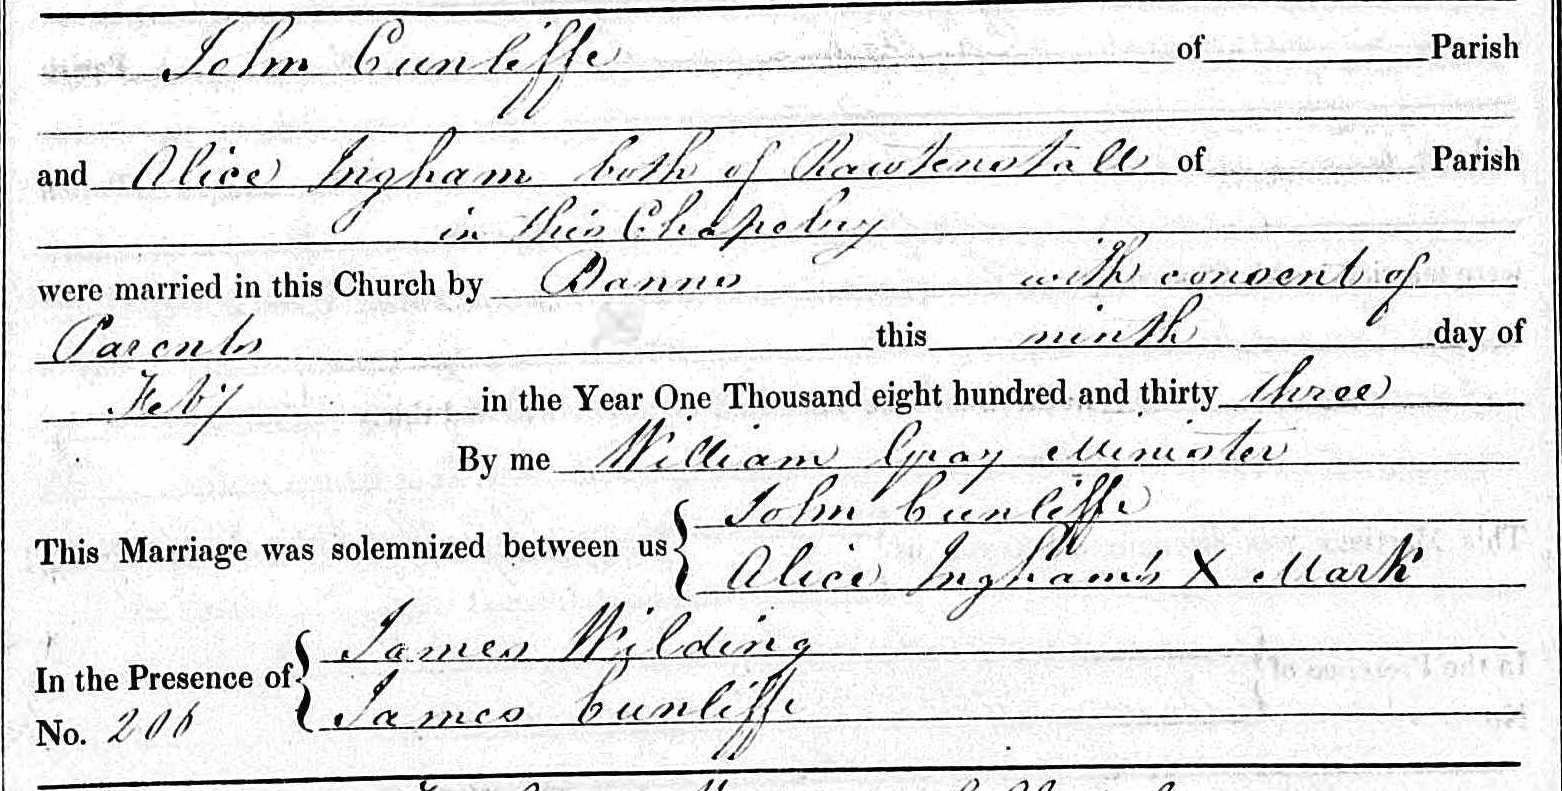 John Cunliffe of Parish
and Alice Ingham both of Rawtenstall of Parish
in this Chapelry
were married in this Church by Banns with consent of
Parents this ninth day of
Feby in the Year One Thousand eight hundred and thirty three
By me William Gray Minister
This Marriage was solemnized between us { John Cunliffe
Alice Ingham's X Mark
In the Presence of { James Wilding
James Cunliffe
No. 206